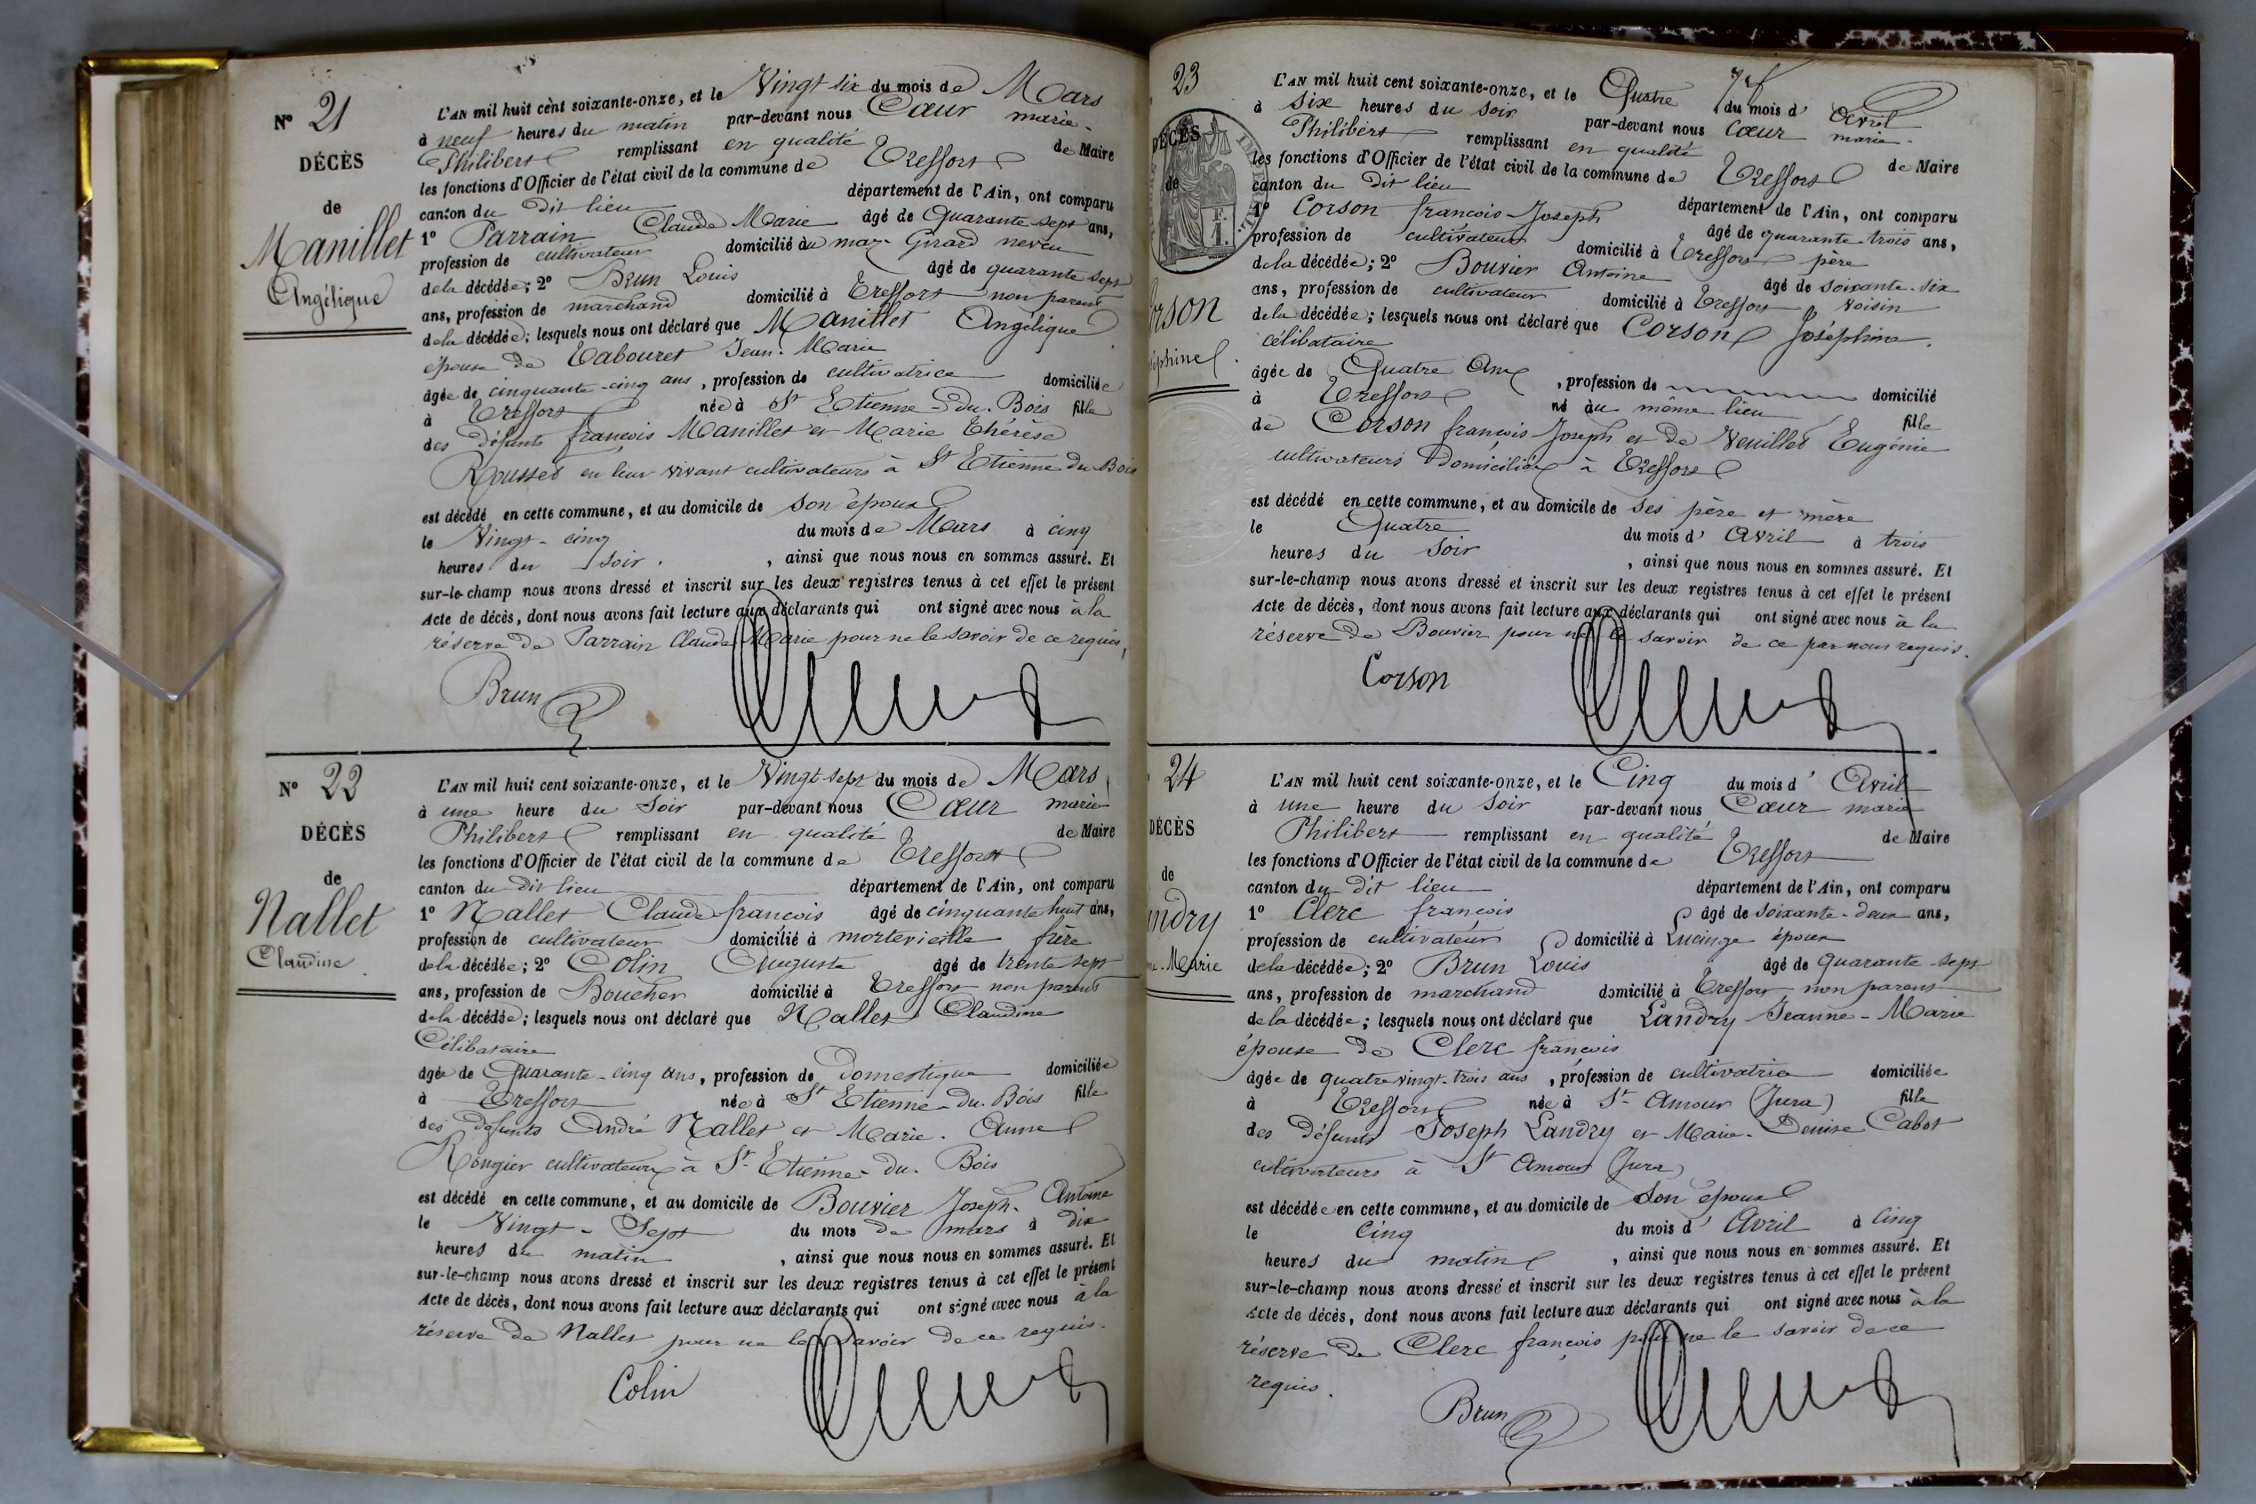 N° 21
DÉCÈS
de
Manillet
Angélique
L'AN mil huit cent soixante-onze, et le Vingt six du mois de Mars
à neuf heures du matin par-devant nous Cœur marie-
Philibert remplissant en qualité de Maire
les fonctions d'Officier de l'état civil de la commune de Treffort
canton du dit lieu département de l'Ain, ont comparu
1° Parrain Claude Marie âgé de Quarante sept ans,
profession de cultivateur domicilié au Girard neveu
de la décédée; 2° Brun Louis âgé de quarante sept
ans, profession de marchand domicilié à Treffort non parent
de la décédée; lesquels nous ont déclaré que Manillet Angélique
épouse de Tabouret Jean-Marie
âgée de cinquante-cinq ans, profession de cultivatrice domiciliée
à Treffort née à St Etienne-du-Bois fille
des défunts françois Manillet et Marie Thérèse
Rousset en leur vivant cultivateurs à St Etienne du Bois
est décédé en cette commune, et au domicile de son époux
le Vingt-cinq du mois de Mars à cinq
heures du soir, ainsi que nous nous en sommes assuré. Et
sur-le-champ nous avons dressé et inscrit sur les deux registres tenus à cet effet le présent
Acte de décès, dont nous avons fait lecture aux déclarants qui ont signé avec nous à la
réserve de Parrain Claude Marie pour ne le savoir de ce requis,
Brun
N° 22
DÉCÈS
de
Nallet
Claudine
L'AN mil huit cent soixante-onze, et le Vingt-sept du mois de Mars
à une heure du Soir par-devant nous Cœur marie
Philibert remplissant en qualité de Maire
les fonctions d'Officier de l'état civil de la commune de Treffort
canton du dit lieu département de l'Ain, ont comparu
1° Nallet Claude françois âgé de cinquante huit ans,
profession de cultivateur domicilié à mortevieille frère
de la décédée; 2° Colin Auguste âgé de trente sept
ans, profession de Boucher domicilié à Treffort non parent
de la décédée; lesquels nous ont déclaré que Nallet Claudine
Célibataire
âgée de Quarante-cinq ans, profession de Domestique domiciliée
à Treffort née à St Etienne-du-Bois fille
des défunts André Nallet et Marie-Anne
Rongier cultivateurs à St-Etienne-du-Bois
est décédé en cette commune, et au domicile de Bouvier Joseph-Antoine
le Vingt-Sept du mois de mars à dix
heures du matin, ainsi que nous nous en sommes assuré. Et
sur-le-champ nous avons dressé et inscrit sur les deux registres tenus à cet effet le présent
Acte de décès, dont nous avons fait lecture aux déclarants qui ont signé avec nous à la
réserve de Nallet pour ne le savoir de ce requis.
Colin
23
DÉCÈS
de
rson
séphine
L'AN mil huit cent soixante-onze, et le Quatre du mois d'Avril
à six heures du soir par-devant nous cœur marie-
Philibert remplissant en qualité de Maire
les fonctions d'Officier de l'état civil de la commune de Treffort
canton du dit lieu département de l'Ain, ont comparu
1° Corson françois-Joseph âgé de quarante-trois ans,
profession de cultivateur domicilié à Treffort père
de la décédée; 2° Bouvier Antoine âgé de soixante-six
ans, profession de cultivateur domicilié à Treffort voisin
de la décédée; lesquels nous ont déclaré que Corson Joséphine.
célibataire
âgée de Quatre Ans, profession de domicilié
à Treffort né au même lieu fille
de Corson françois-Joseph et de Veuillet Eugénie
cultivateurs domiciliés à Treffort
est décédé en cette commune, et au domicile de ses père et mère
le Quatre du mois d'Avril à trois
heures du soir, ainsi que nous nous en sommes assuré. Et
sur-le-champ nous avons dressé et inscrit sur les deux registres tenus à cet effet le présent
Acte de décès, dont nous avons fait lecture aux déclarants qui ont signé avec nous à la
réserve de Bouvier pour ne le savoir de ce par nous requis.
Corson
24
DÉCÈS
de
ndry
ne-Marie
L'AN mil huit cent soixante-onze, et le Cinq du mois d'Avril
à une heure du soir par-devant nous Cœur marie
Philibert remplissant en qualité de Maire
les fonctions d'Officier de l'état civil de la commune de Treffort
canton du dit lieu département de l'Ain, ont comparu
1° Clerc françois âgé de soixante-deux ans,
profession de cultivateur domicilié à Lucinge époux
de la décédée; 2° Brun Louis âgé de Quarante-sept
ans, profession de marchand domicilié à Treffort non parent
de la décédée; lesquels nous ont déclaré que Landry Jeanne-Marie
épouse de Clerc françois
âgée de quatre vingt-trois ans, profession de cultivatrice domiciliée
à Treffort née à St-Amour (Jura) fille
des défunts Joseph Landry et Marie-Denise Cabot
cultivateurs à St Amour (Jura)
est décédée en cette commune, et au domicile de Son époux
le Cinq du mois d'Avril à Cinq
heures du matin, ainsi que nous nous en sommes assuré. Et
sur-le-champ nous avons dressé et inscrit sur les deux registres tenus à cet effet le présent
Acte de décès, dont nous avons fait lecture aux déclarants qui ont signé avec nous à la
réserve de Clerc françois pour ne le savoir de ce
requis.
Brun